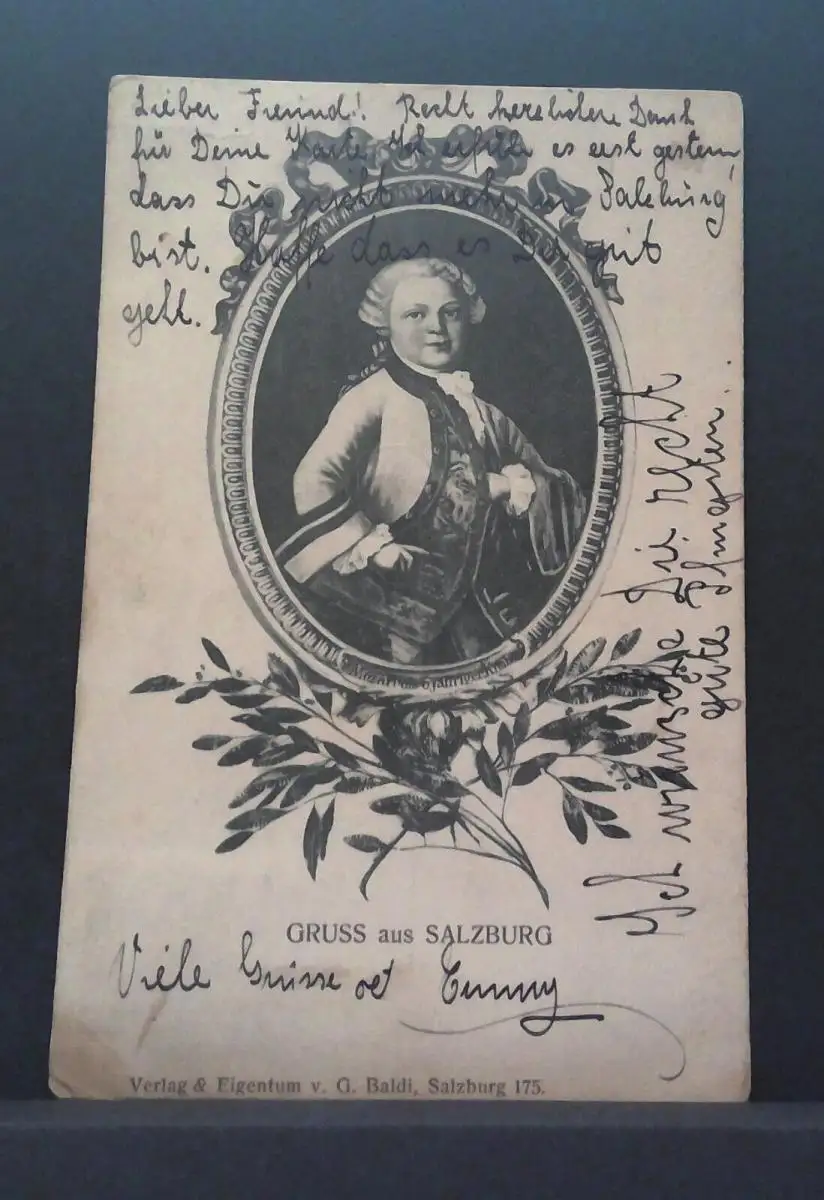 Lieber Freund! Recht herzlichen Dank
für Deine Karte. Ich erfuhr es erst gestern,
dass Du nicht mehr in Salzburg
bist. Hoffe dass es Dir gut
geht.
Ich wünsche Dir recht
gute Pfingsten.
Mozart als 6 jähriger Knabe
GRUSS aus SALZBURG
Viele Grüsse
Verlag & Eigentum v. G. Baldi, Salzburg 175.